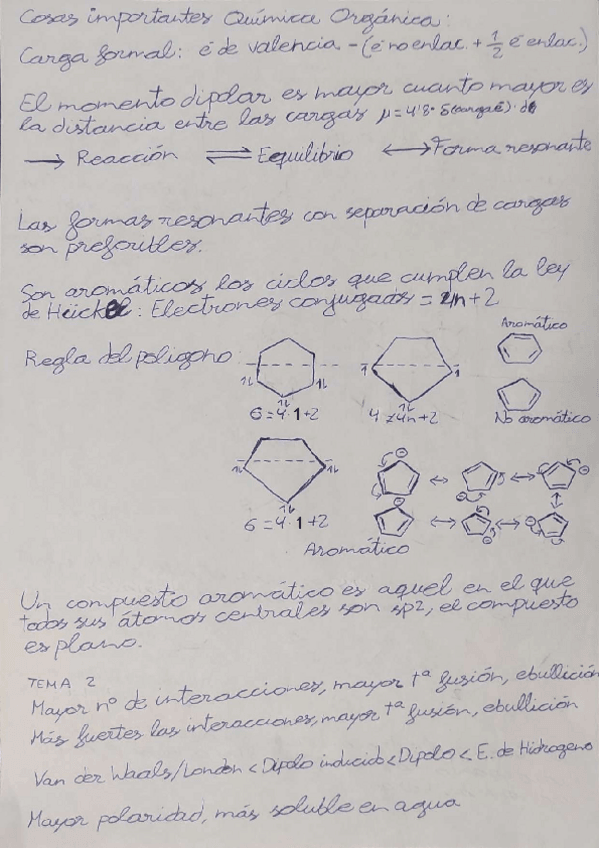 Cosas importantes Química Orgánica:
Carga formal: é de valencia - (é no enlac. + 1/2 é enlac.)
El momento dipolar es mayor cuanto mayor es
la distancia entre las cargas μ = 4'8 · δ(carga é) · d
→ Reacción ⇌ Equilibrio ↔ Forma resonante
Las formas resonantes con separación de cargas
son preferibles.
Son aromáticos los ciclos que cumplen la ley
de Hückel: Electrones conjugados = 4n+2
Aromático
Regla del polígono
6 = 4·1+2
4 ≠ 4n+2
No aromático
6 = 4·1+2
Aromático
Un compuesto aromático es aquel en el que
todos sus átomos centrales son sp2, el compuesto
es plano.
TEMA 2
Mayor nº de interacciones, mayor tª fusión, ebullición
Más fuertes las interacciones, mayor tª fusión, ebullición
Van der Waals/London < Dipolo inducido < Dipolo < E. de Hidrogeno
Mayor polaridad, más soluble en agua